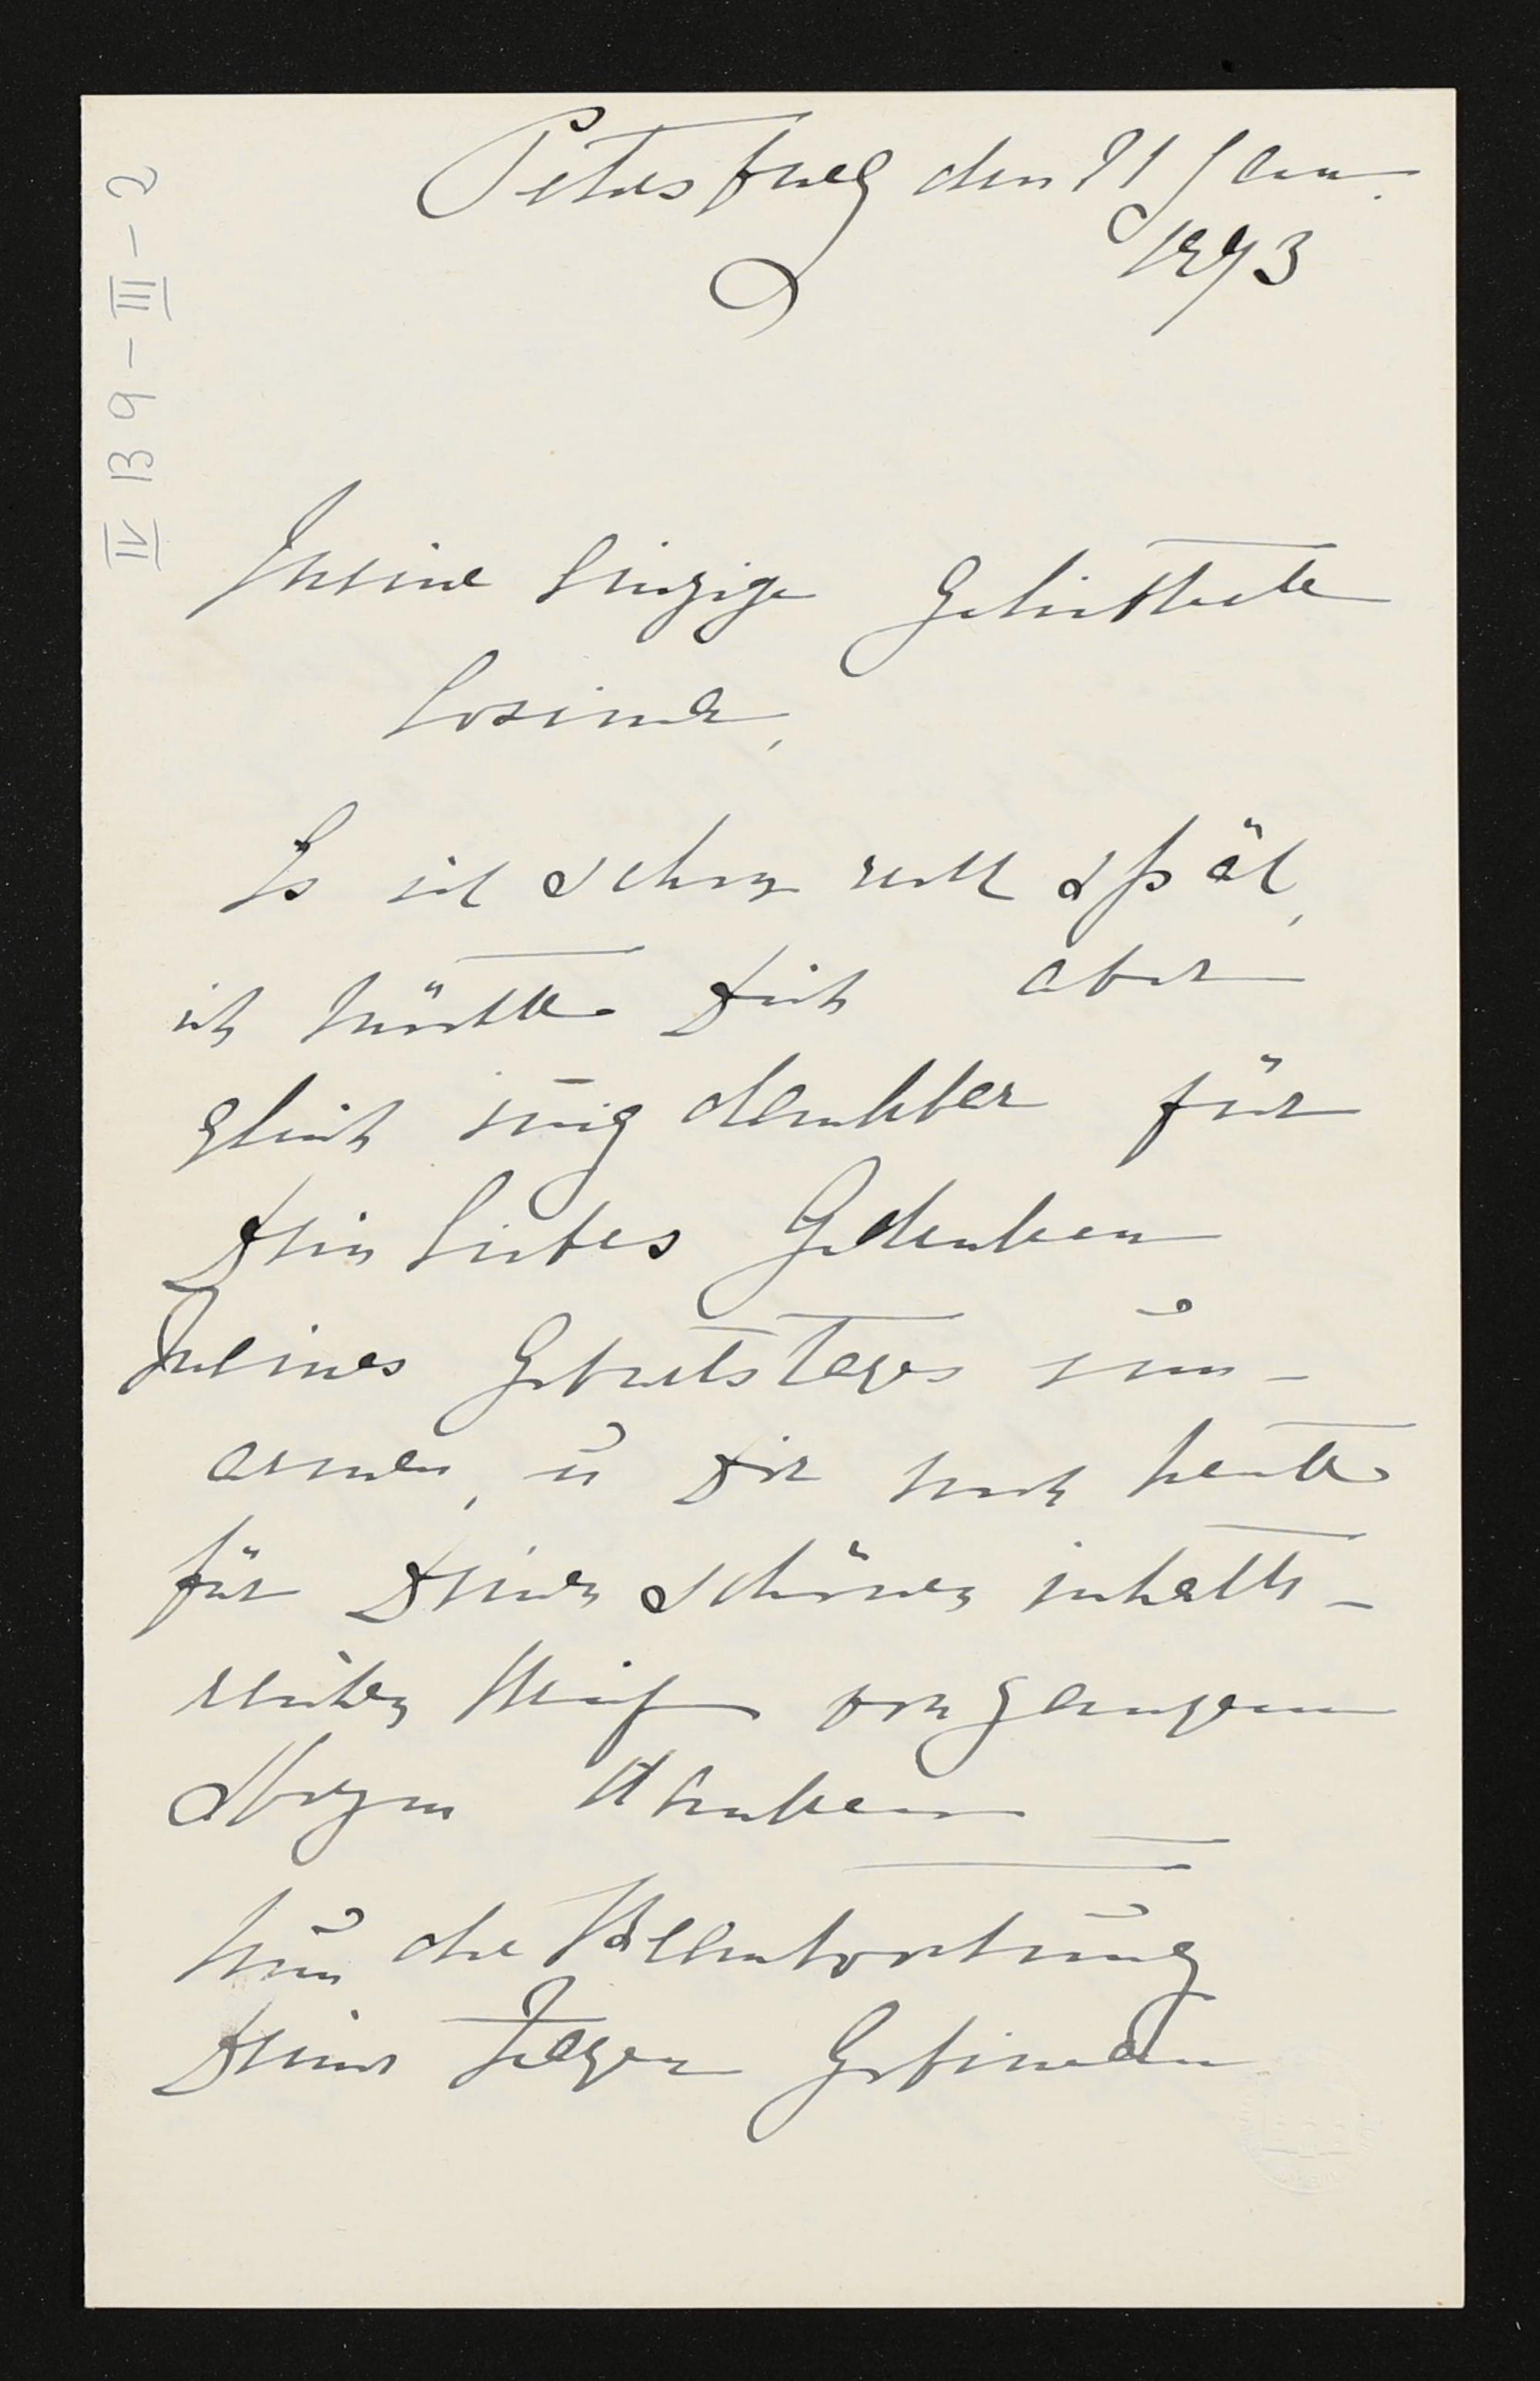 IV B 9 - III - 2
Petersburg den 21 Jan.
1893
Meine Einzige Geliebteste
Cosima,
Es ist schon recht spät,
ich möchte Dich aber
gleich innig dankbar für
Dein liebes Gedenken
Meines Geburtstages um-
armen, u Dir noch heute
für Deinen schönen inhalts-
reichen Brief von ganzem
Herzen danken
Nun die Beantwortung
Deiner Fragen